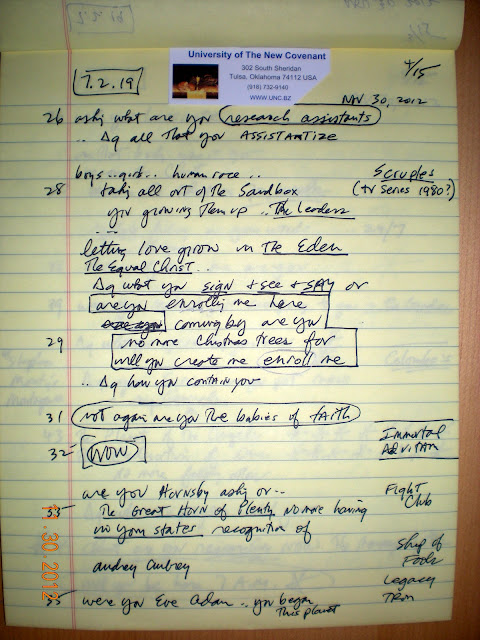 University of The New Covenant
302 South Sheridan
Tulsa, Oklahoma 74112 USA
(918) 732-9140
WWW.UNC.BZ
7.2.19
4/15
NOV 30, 2012
26 askg what are you research assistants
.. Δg all that you ASSISTANTIZE
boys..girls.. human race ..
Scruples
28 takg all out of the Sandbox
(tv series 1980?)
you growing them up .. The Leaders
...
letting love grow in The Eden
The Equal Christ..
Δg what you sign + see + SAY or
are you enrollg me here
coming by are you
29 no more Christmas trees for
will you create me enroll me
.. Δg how you contain you
31 not again are you the babies of faith
32 WOW
Immortal
Ad vitam
are you Hornsby askg or..
Fight
Club
33 The Great Horn of Plenty no more having
no yom states recognition of
Ship of
Fools
audrey Aubrey
Legacy
Tron
35 were you Eve Adam .. you began
This planet
11.30.2012